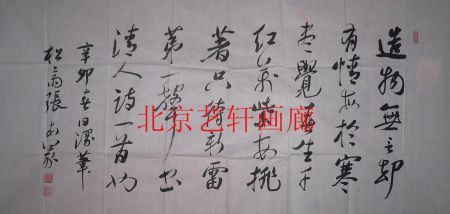 造物無言却
有情每於寒
盡覺春生千
紅萬紫安排
著只待新雷
第一聲書
清人詩一首於
辛卯春日潑華
松高張
北京艺轩画廊